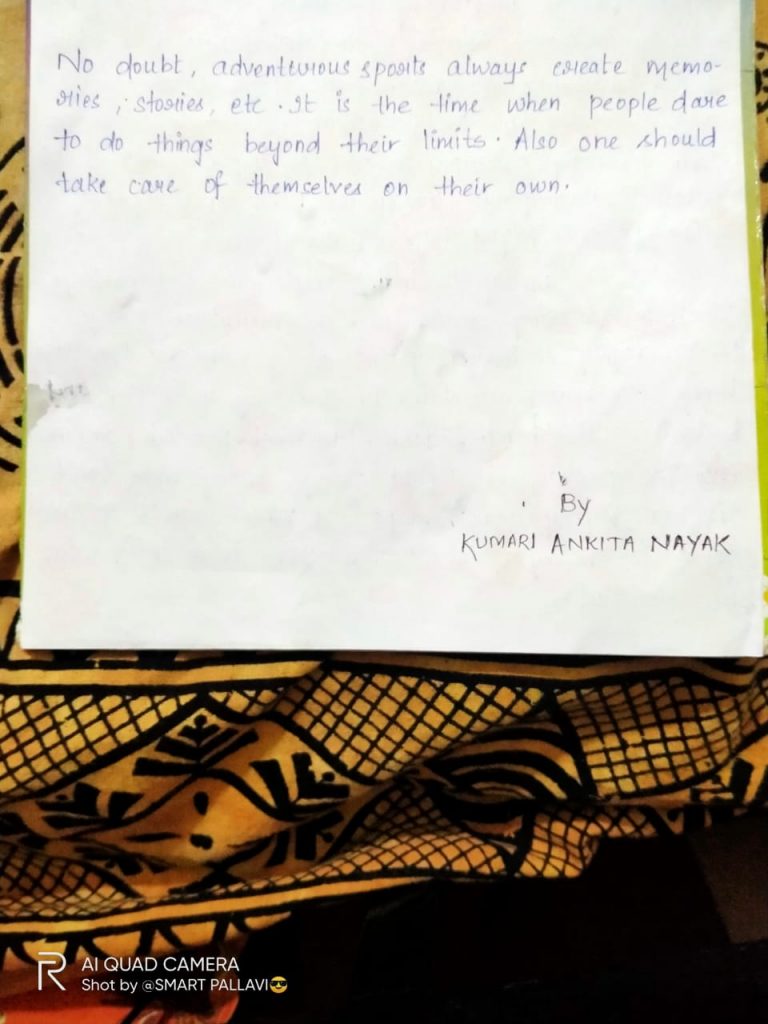 No doubt, adventurous sports always create memo-
ries, stories, etc. It is the time when people dare
to do things beyond their limits. Also one should
take care of themselves on their own.
By
KUMARI ANKITA NAYAK
AI QUAD CAMERA
Shot by @SMART PALLAVI😎